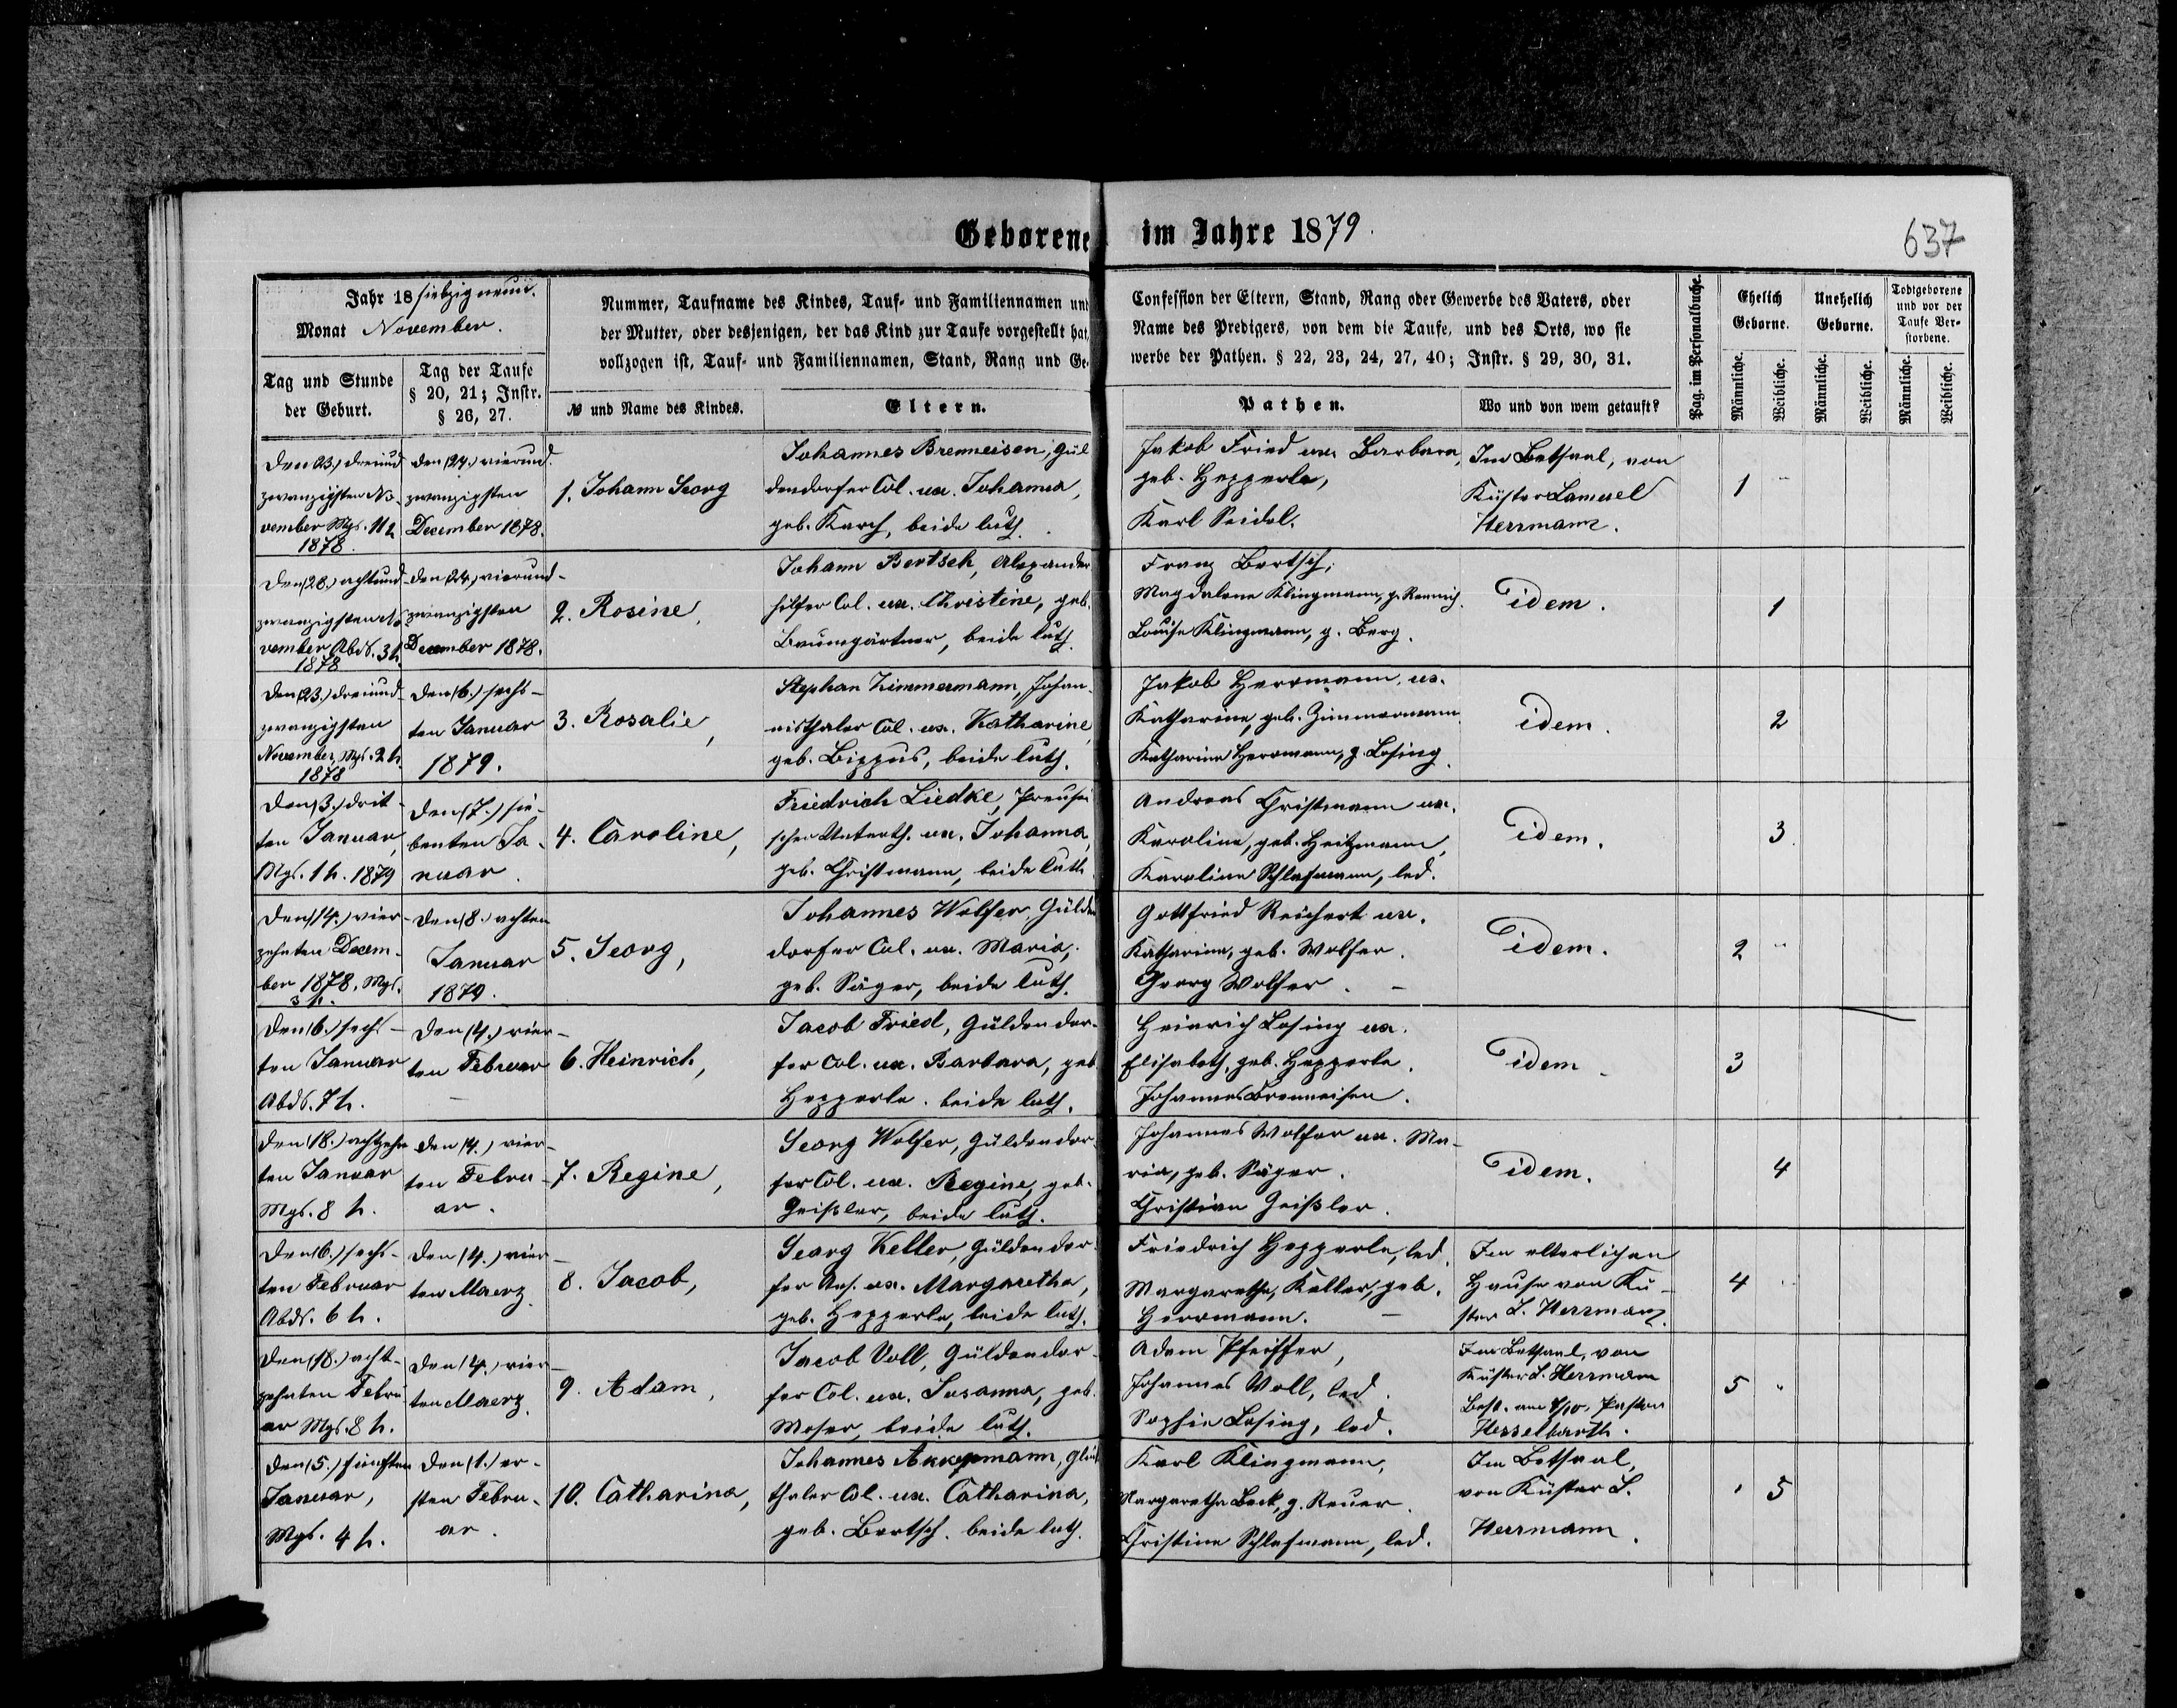 Geborene im Jahre 1879.
637
Jahr 18 siebzig neun.
Monat November.
Tag und Stunde
der Geburt.
Tag der Taufe
§ 20, 21; Instr.
§ 26, 27.
Nummer, Taufname des Kindes, Tauf- und Familiennamen und
der Mutter, oder desjenigen, der das Kind zur Taufe vorgestellt hat,
vollzogen ist, Tauf- und Familiennamen, Stand, Rang und Ge-
№ und Name des Kindes.
Eltern.
Confession der Eltern, Stand, Rang oder Gewerbe des Vaters, oder
Name des Predigers, von dem die Taufe, und des Orts, wo sie
werbe der Pathen. § 22, 23, 24, 27, 40; Instr. § 29, 30, 31.
Pathen.
Wo und von wem getauft?
Pag. im Personalbuche.
Ehelich
Geborne.
Unehelich
Geborne.
Todtgeborene
und vor der
Taufe Ver-
storbene.
Männliche.
Weibliche.
Männliche.
Weibliche.
Männliche.
Weibliche.
Den (23.) dreiund
zwanzigsten No-
vember Mgs. 11 h
1878.
den (24.) vierund-
zwanzigsten
December 1878.
1. Johann Georg
Johannes Brenneisen, Gül
dendorfer Col. ux. Johanna,
geb. Karch, beide luth.
Jakob Fried ux. Barbara,
geb. Hepperle,
Karl Seidel.
Im Betsaal, von
Küster Samuel
Herrmann.
1
Den (28.) achtund-
zwanzigsten No
vember Abds. 3 h.
1878
den (24.) vierund-
zwanzigsten
December 1878.
2. Rosine,
Johann Bertsch, Alexander
hilfer Col. ux. Christine, geb.
Baumgärtner, beide luth.
Franz Bertsch,
Magdalena Klingmann, g.
Louise Klingmann, g. Berg.
idem.
1
Den (23.) dreiund-
zwanzigsten
November, Mgs. 2 h.
1878
den (6.) sechs-
ten Januar
1879.
3. Rosalie,
Stephan Zimmermann, Johan-
nisthaler Col. ux. Katharine
geb. Bippus, beide luth.
Jakob Herrmann, ux.
Katharina, geb. Zimmermann
Katharina Herrmann, g. Losing
idem.
2
Den (3.) drit-
ten Januar,
Mgs. 1 h. 1879
den (7.) sie-
benten Ja-
nuar.
4. Caroline,
Friedrich Liedke, Preussi
scher Unterth. ux. Johanna,
geb. Christmann, beide luth
Andreas Christmann ux.
Karolina, geb. Heitzmann,
Karolina Schlafmann, led.
idem.
3.
Den (14.) vier-
zehnten Decem-
ber 1878, Mgs.
3 h.
den (8.) achten
Januar
1879.
5. Georg,
Johannes Wolfer, Gülden
dorfer Col. ux. Maria,
geb. Säger, beide luth.
Gottfried Reichert ux.
Katharina, geb. Wolfer.
Georg Wolfer. –
idem.
2
Den (6.) sechs-
ten Januar
Abds. 7 h.
den (4.) vier-
ten Februar
6. Heinrich,
Jacob Fried, Güldendor-
fer Col. ux. Barbara, geb
Hepperle. beide luth.
Heinrich Losing ux.
Elisabeth, geb. Hepperle.
Johannes Brenneisen.
idem
3
Den (18.) achtzehn
ten Januar
Mgs. 8 h.
den (4.) vier-
ten Febru-
ar.
7. Regine,
Georg Wolfer, Güldendor-
fer Col. ux. Regine, geb.
Geißler, beide luth.
Johannes Wolfer ux. Ma-
ria, geb. Säger.
Christian Geißler.
idem.
4
Den (6.) sechs-
ten Februar
Abds. 6 h.
den (4.) vier-
ten Maerz.
8. Jacob,
Georg Keller, Güldendor-
fer Ans. ux. Margaretha,
geb. Hepperle, beide luth.
Friedrich Hepperle, led.
Margaretha, Keller, geb.
Herrmann. –
Im elterlichen
Hause von Kü-
ster S. Herrmann.
4
Den (18.) acht-
zehnten Febru
ar Mgs. 8 h.
den (4.) vier-
ten Maerz.
9. Adam,
Jacob Voll, Güldendor-
fer Col. ux. Susanna, geb.
Moser, beide luth.
Adam Pfeiffer,
Johannes Voll, led.
Sophie Losing, led.
Im Betsaal, von
Küster S. Herrmann
Best. am 8/10. Pastor
Hesselbarth.
5
Den (5.) fünften
Januar,
Mgs. 4 h.
den (1.) er-
sten Febru-
ar.
10. Catharina,
Johannes Akkermann, Glücks
thaler Col. ux. Catharina,
geb. Bertsch. beide luth.
Karl Klingmann,
Margaretha Beck, g. Reuer.
Christine Schlafmann, led.
Im Betsaal,
von Küster S.
Herrmann.
5